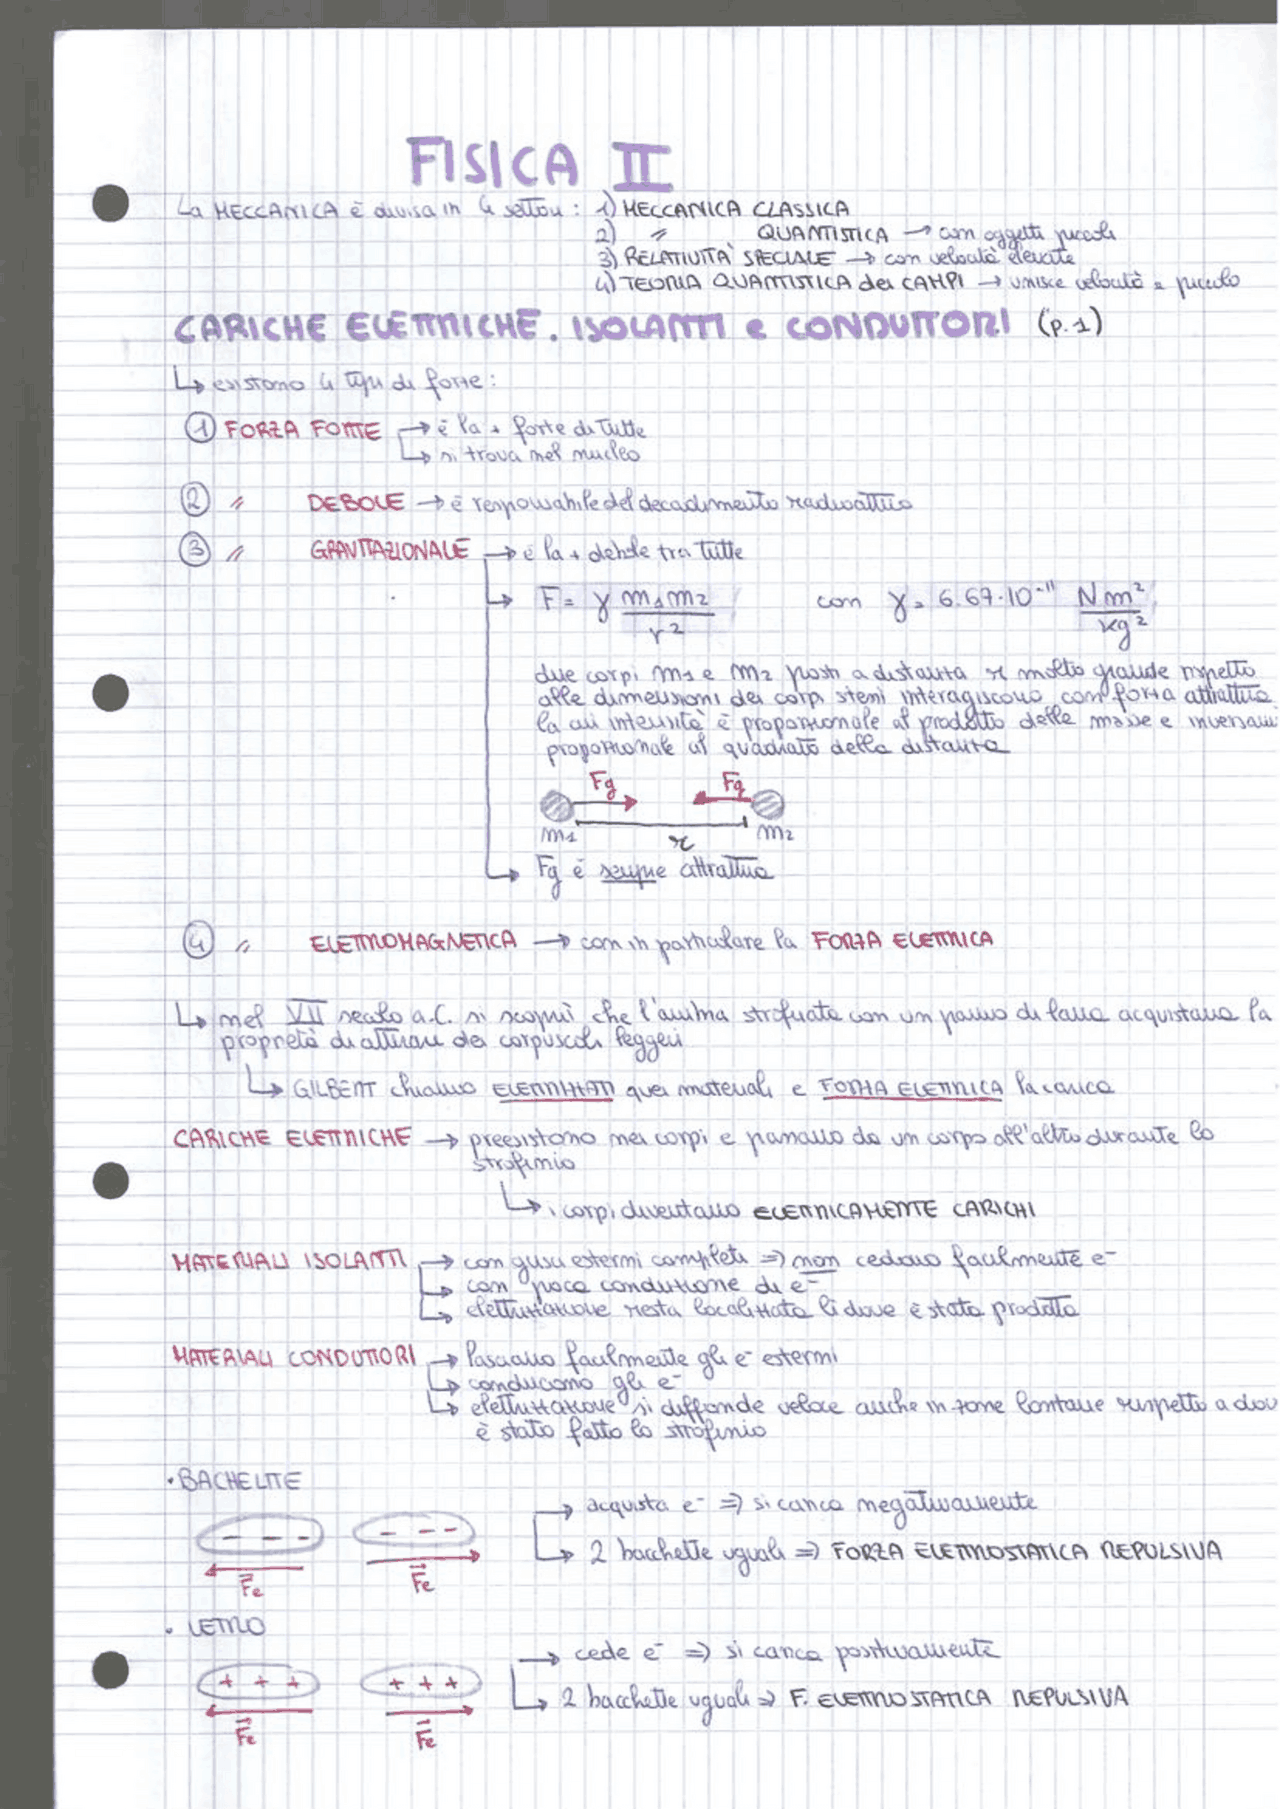 FISICA II
La MECCANICA è divisa in 4 settori : 1) MECCANICA CLASSICA
2) " QUANTISTICA → con oggetti piccoli
3) RELATIVITÀ SPECIALE → con velocità elevate
4) TEORIA QUANTISTICA dei CAMPI → unisce velocità e piccolo
CARICHE ELETTRICHE. ISOLANTI e CONDUTTORI (p.1)
↳ esistono 4 tipi di forze :
① FORZA FORTE → è la + forte di tutte
↳ si trova nel nucleo
② " DEBOLE → è responsabile del decadimento radioattivo
③ " GRAVITAZIONALE → è la + debole tra tutte
↳ F = γ m₁m₂ / r² con γ = 6.67·10⁻¹¹ Nm² / kg²
due corpi m₁ e m₂ posti a distanza r molto grande rispetto
alle dimensioni dei corpi stessi interagiscono con forza attrattiva
la cui intensità è proporzionale al prodotto delle masse e inversam
proporzionale al quadrato della distanza
Fg Fg
m₁ r m₂
↳ Fg è sempre attrattiva
④ " ELETTROMAGNETICA → con in particolare la FORZA ELETTRICA
↳ nel VII secolo a.C. si scoprì che l'ambra strofinata con un panno di lana acquistava la
proprietà di attirare dei corpuscoli leggeri
↳ GILBERT chiamò ELETTRIZZATI quei materiali e FORZA ELETTRICA la carica
CARICHE ELETTRICHE → preesistono nei corpi e passano da un corpo all'altro durante lo
strofinio
↳ i corpi diventano ELETTRICAMENTE CARICHI
MATERIALI ISOLANTI → con gusci esterni completi ⇒ non cedono facilmente e⁻
↳ con poca conduzione di e⁻
↳ elettrizzazione resta localizzata lì dove è stata prodotta
MATERIALI CONDUTTORI → lasciano facilmente gli e⁻ esterni
↳ conducono gli e⁻
↳ elettrizzazione si diffonde veloce anche in zone lontane rispetto a dov
è stato fatto lo strofinio
• BACHELITE
→ acquista e⁻ ⇒ si carica negativamente
- - - - - -
↳ 2 bacchette uguali ⇒ FORZA ELETTROSTATICA REPULSIVA
F⃗e F⃗e
• VETRO
→ cede e⁻ ⇒ si carica positivamente
+ + + + + +
↳ 2 bacchette uguali ⇒ F. ELETTROSTATICA REPULSIVA
F⃗e F⃗e